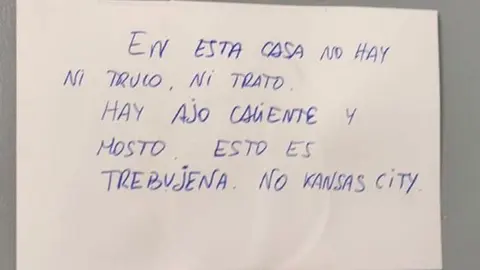 EN ESTA CASA NO HAY
NI TRUCO, NI TRATO.
HAY AJO CALIENTE Y
MOSTO. ESTO ES
TREBUJENA. NO KANSAS CITY.